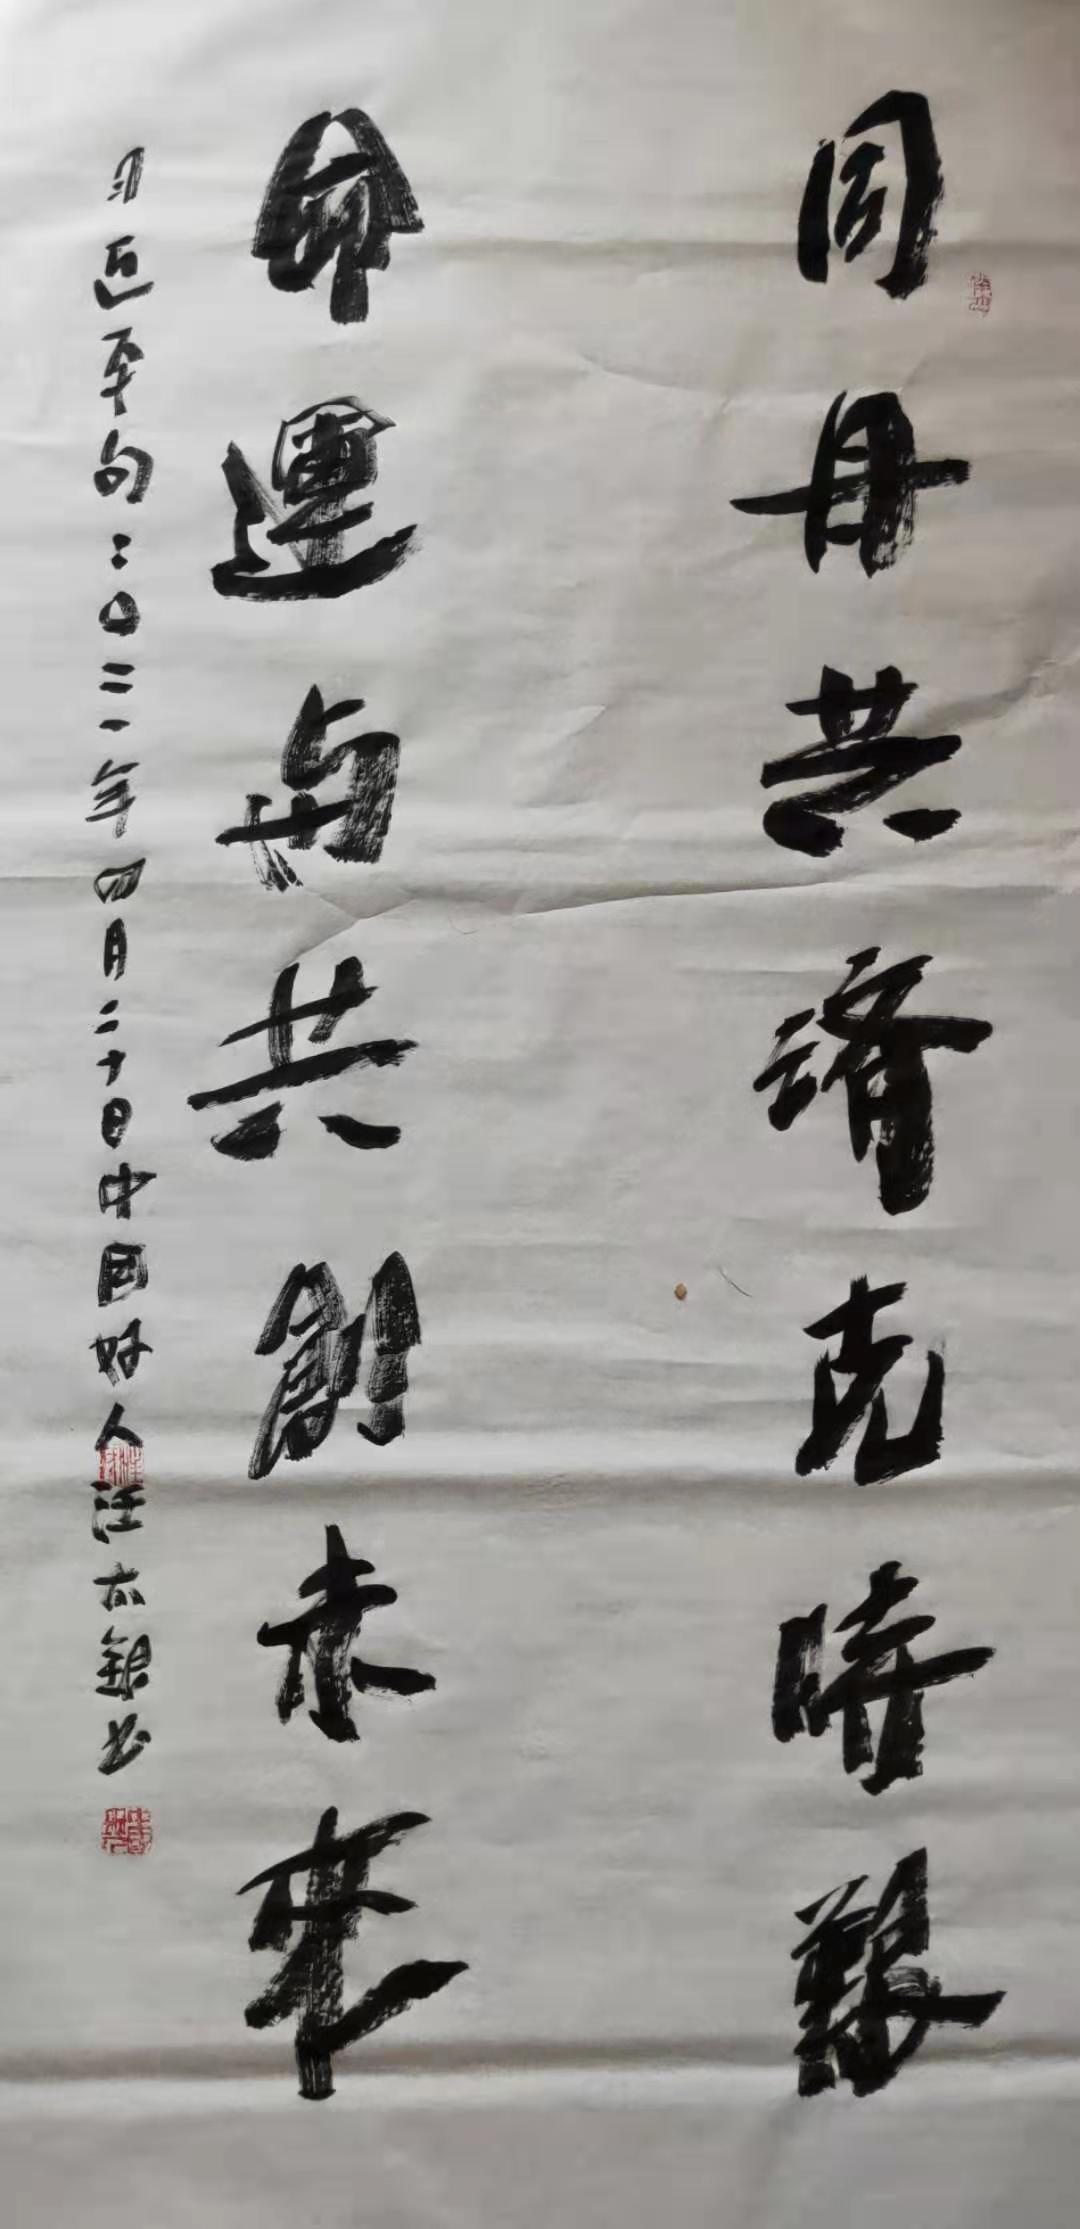 同舟共濟克時艱
命運与共創未來
习近平句二〇二一年四月二十日中国好人汪亦銀书